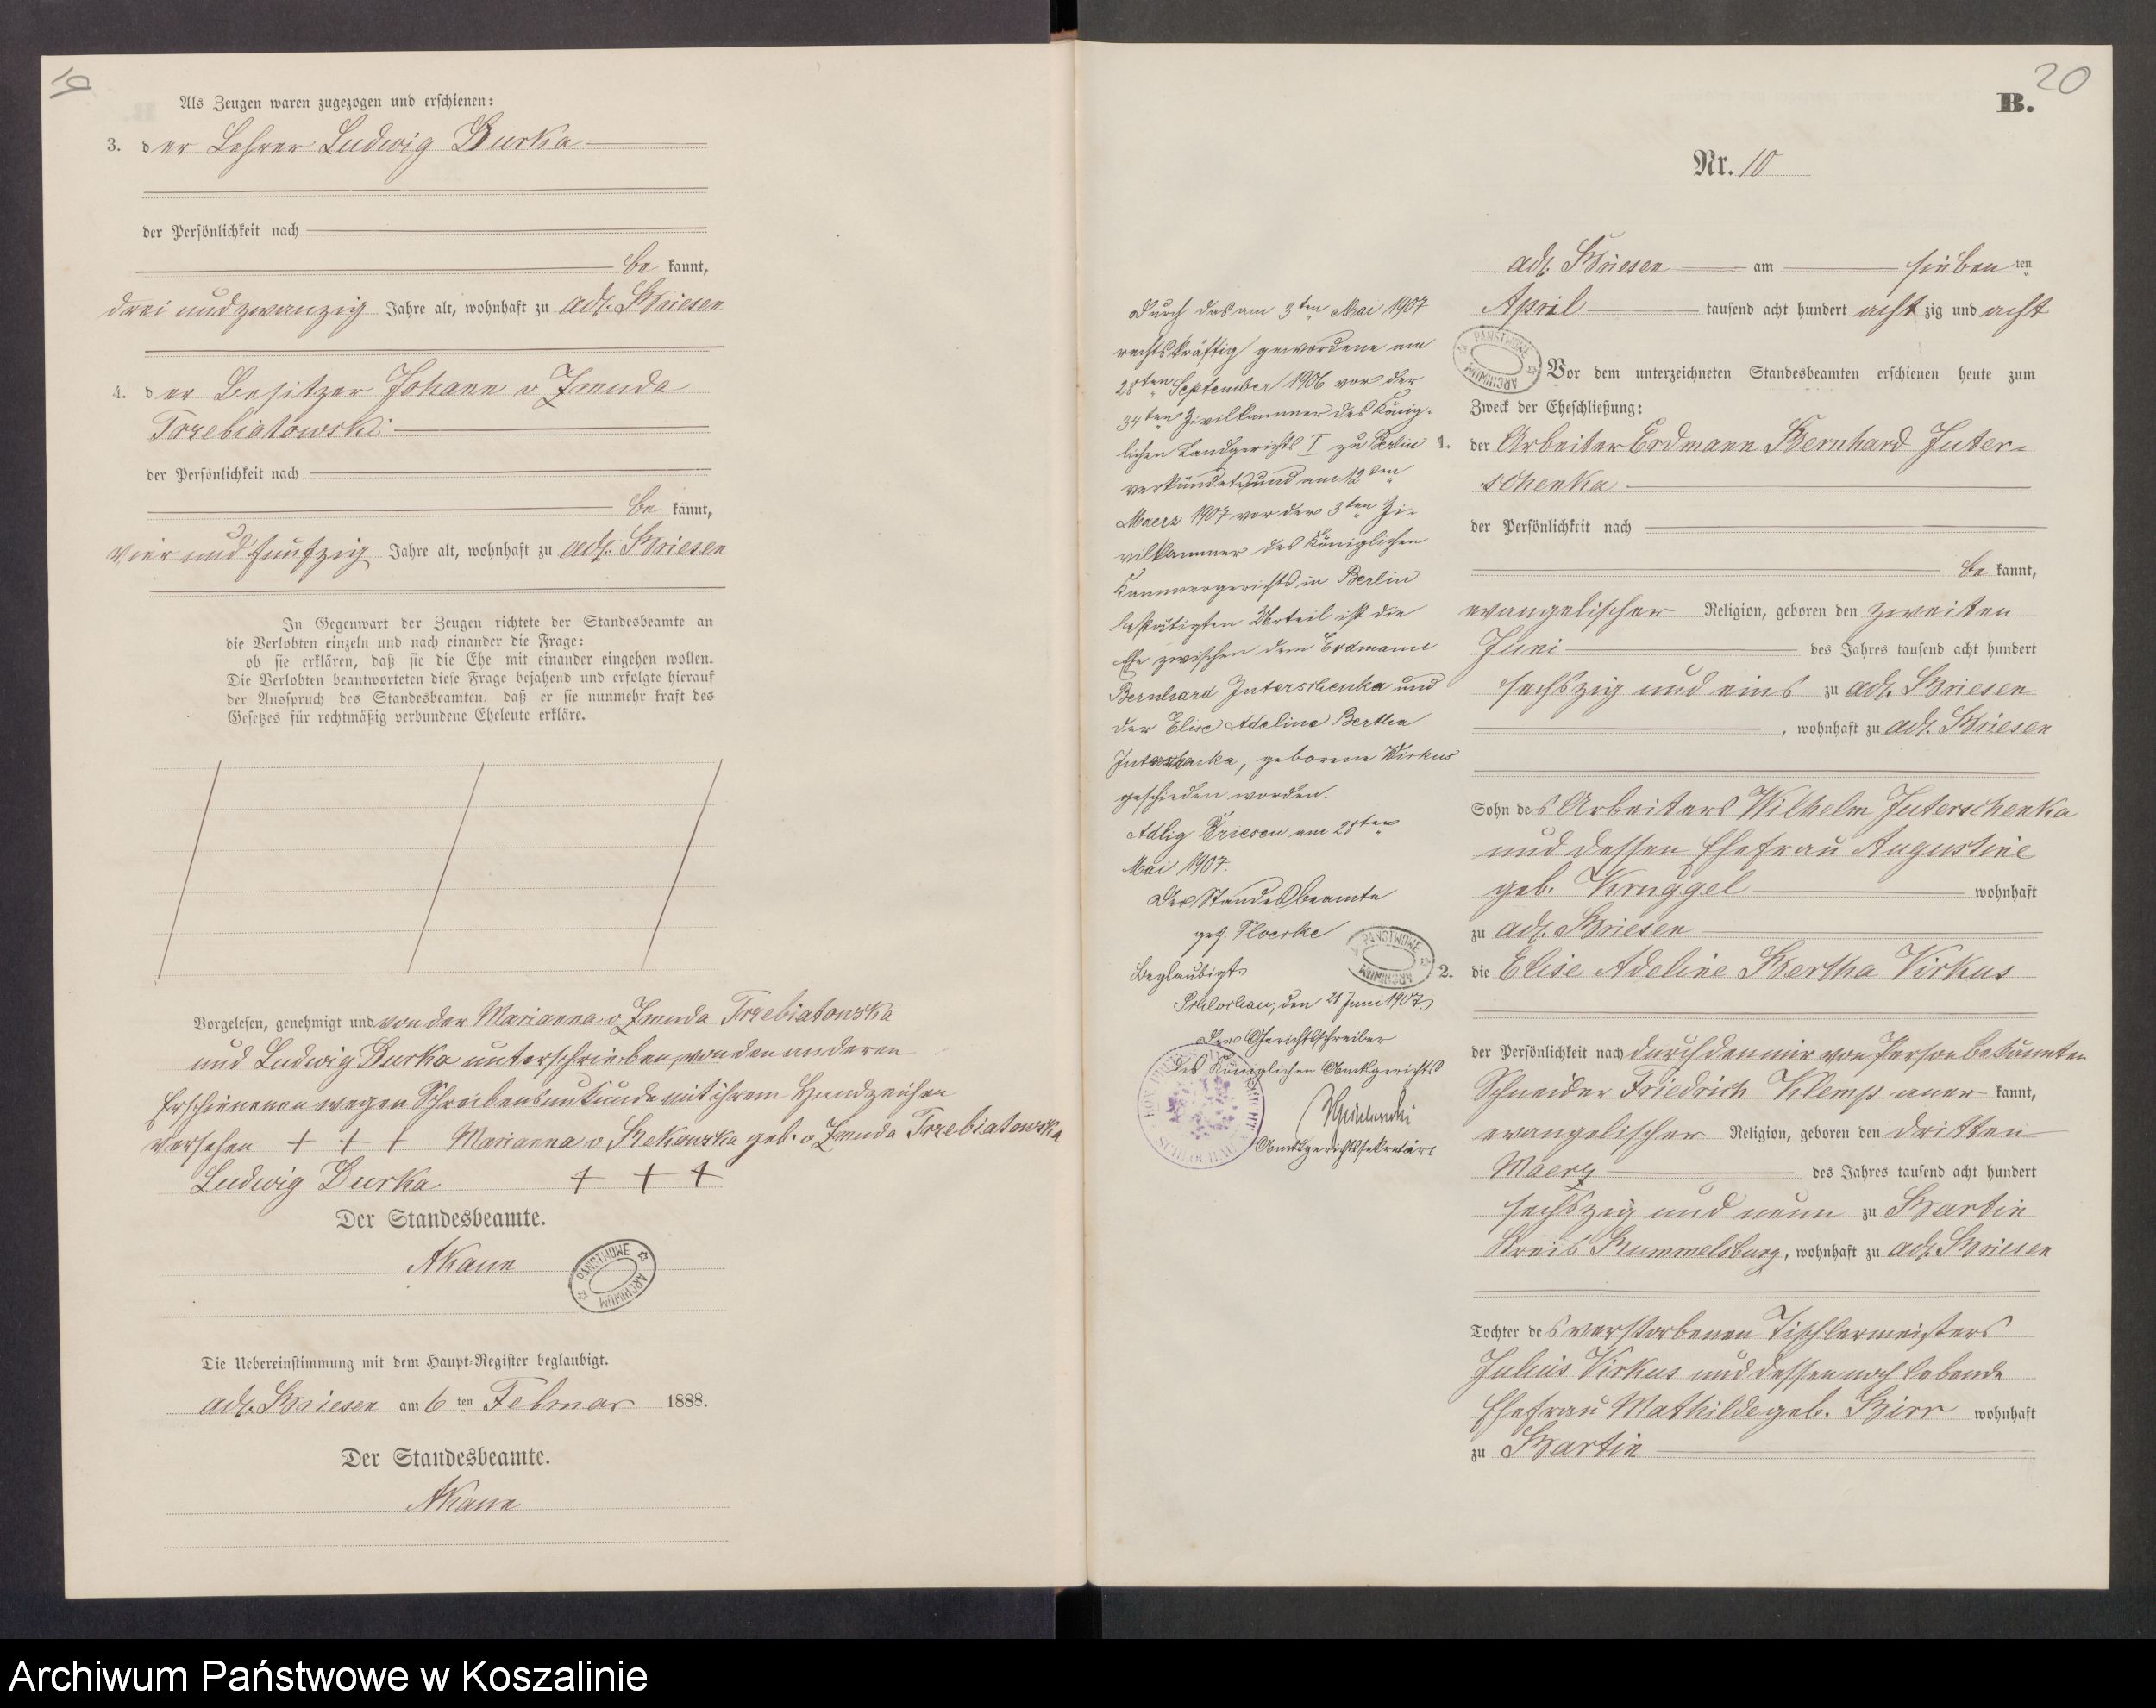 19
Als Zeugen waren zugezogen und erschienen:
3. der Lehrer Ludwig Durka
der Persönlichkeit nach
be kannt,
drei und zwanzig Jahre alt, wohnhaft zu adl. Briesen
4. der Besitzer Johann v Zmuda
Trzebiatowski
der Persönlichkeit nach
be kannt,
vier und fünfzig Jahre alt, wohnhaft zu adl. Briesen
In Gegenwart der Zeugen richtete der Standesbeamte an
die Verlobten einzeln und nach einander die Frage:
ob sie erklären, daß sie die Ehe mit einander eingehen wollen.
Die Verlobten beantworteten diese Frage bejahend und erfolgte hierauf
der Ausspruch des Standesbeamten, daß er sie nunmehr kraft des
Gesetzes für rechtmäßig verbundene Eheleute erkläre.
Vorgelesen, genehmigt und von der Marianna v Zmuda Trzebiatowska
und Ludwig Durka unterschrieben, von den anderen
Erschienenen wegen Schreibensunkunde mit ihrem Handzeichen
versehen + + + Marianna v Rekowska geb. v Zmuda Trzebiatowska
Ludwig Durka + + +
Der Standesbeamte.
AKann
PAŃSTWOWE ARCHIWUM
Die Uebereinstimmung mit dem Haupt-Register beglaubigt.
adl. Briesen am 6 ten Februar 1888.
Der Standesbeamte.
AKann
20
B.
Nr. 10
adl. Briesen am sieben ten
April tausend acht hundert acht zig und acht
PAŃSTWOWE ARCHIWUM
Vor dem unterzeichneten Standesbeamten erschienen heute zum
Zweck der Eheschließung:
1. der Arbeiter Erdmann Bernhard Juter-
schenka
der Persönlichkeit nach
be kannt,
evangelischer Religion, geboren den zweiten
Juni des Jahres tausend acht hundert
sechszig und eins zu adl. Briesen
, wohnhaft zu adl. Briesen
Sohn des Arbeiters Wilhelm Juterschenka
und dessen Ehefrau Augustine
geb. Kruggel wohnhaft
zu adl. Briesen
2. die Elise Adeline Bertha Virkus
der Persönlichkeit nach durch den mir von Person bekannten
Schneider Friedrich Klemp aner kannt,
evangelischer Religion, geboren den dritten
Maerz des Jahres tausend acht hundert
sechszig und neun zu Bartin
Kreis Rummelsburg, wohnhaft zu adl. Briesen
Tochter des verstorbenen Tischlermeisters
Julius Virkus und dessen noch lebende
Ehefrau Mathilde geb. Birr wohnhaft
zu Bartin
Durch das am 3ten Mai 1907
rechtskräftig gewordene am
28ten September 1906 vor der
34ten Zivilkammer des König-
lichen Landgerichts I zu Berlin
verkündete und am 12ten
Maerz 1907 vor der 3ten Zi-
vilkammer des Königlichen
Kammergerichts in Berlin
bestätigten Urteil ist die
Ehe zwischen dem Erdmann
Bernhard Juterschenka und
der Elise Adeline Bertha
Juterschenka, geborene Virkus
geschieden worden.
Adlig Briesen am 28ten
Mai 1907.
Der Standesbeamte
gez. Ploerke
PAŃSTWOWE ARCHIWUM
Beglaubigt
Schlochau, den 21. Juni 1907.
Der Gerichtsschreiber
des Königlichen Amtsgerichts
Amtsgerichtssekretär
Archiwum Państwowe w Koszalinie